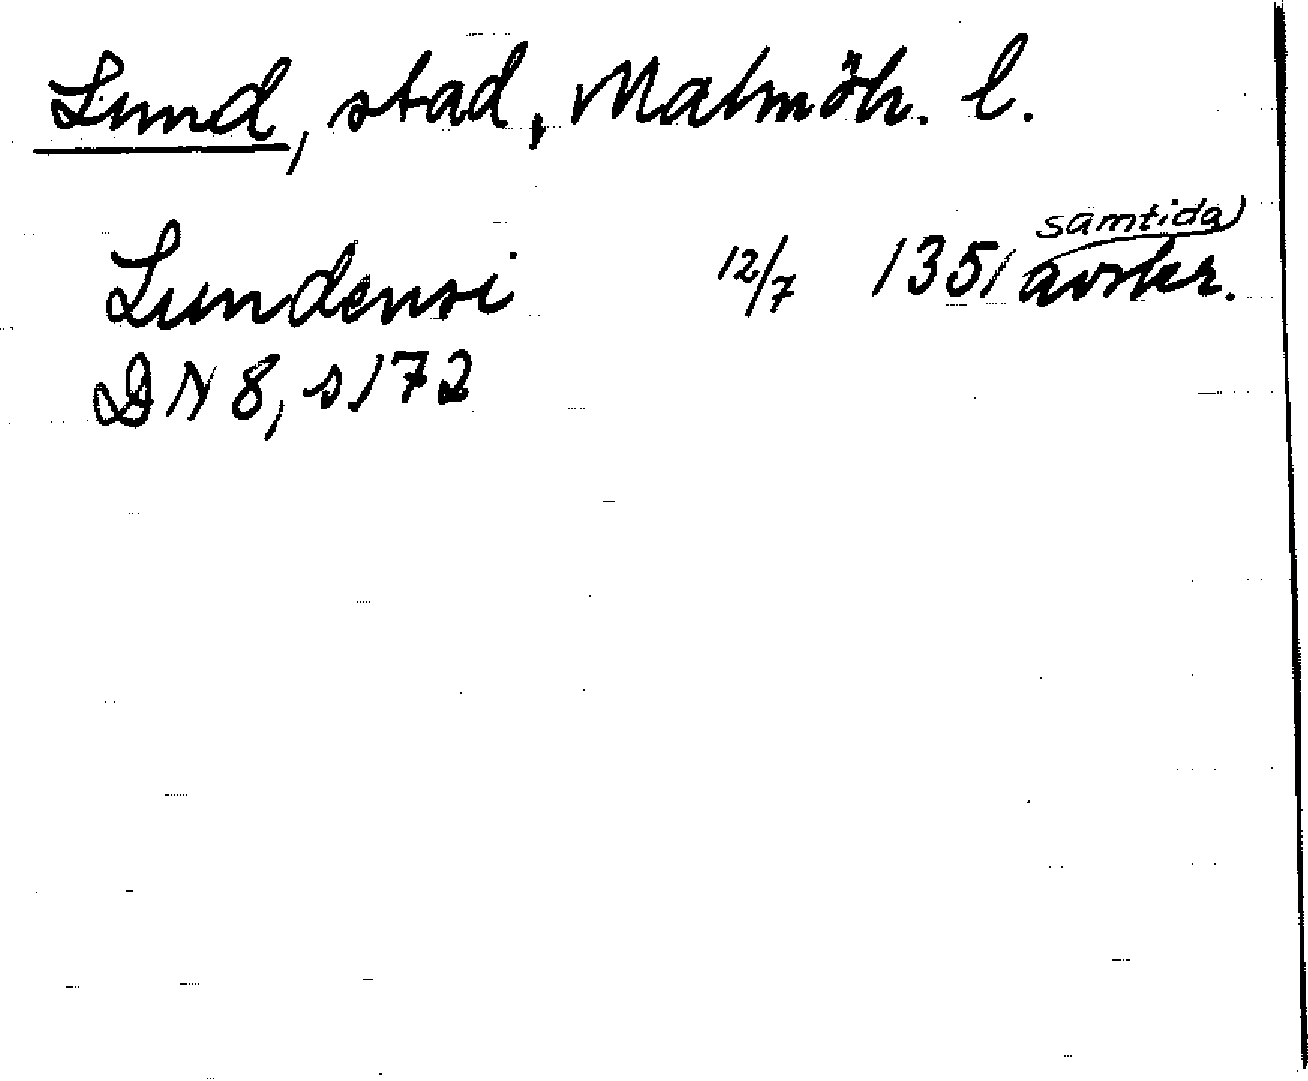 Lund, stad, Malmöh. l.
Lundensi 12/7 1351 samtida avskr.
DN 8, s 172